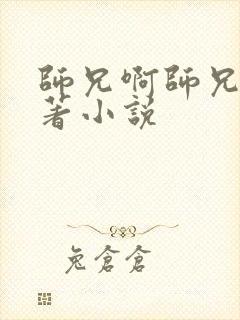 師兄啊師兄
著小說
兔倉倉